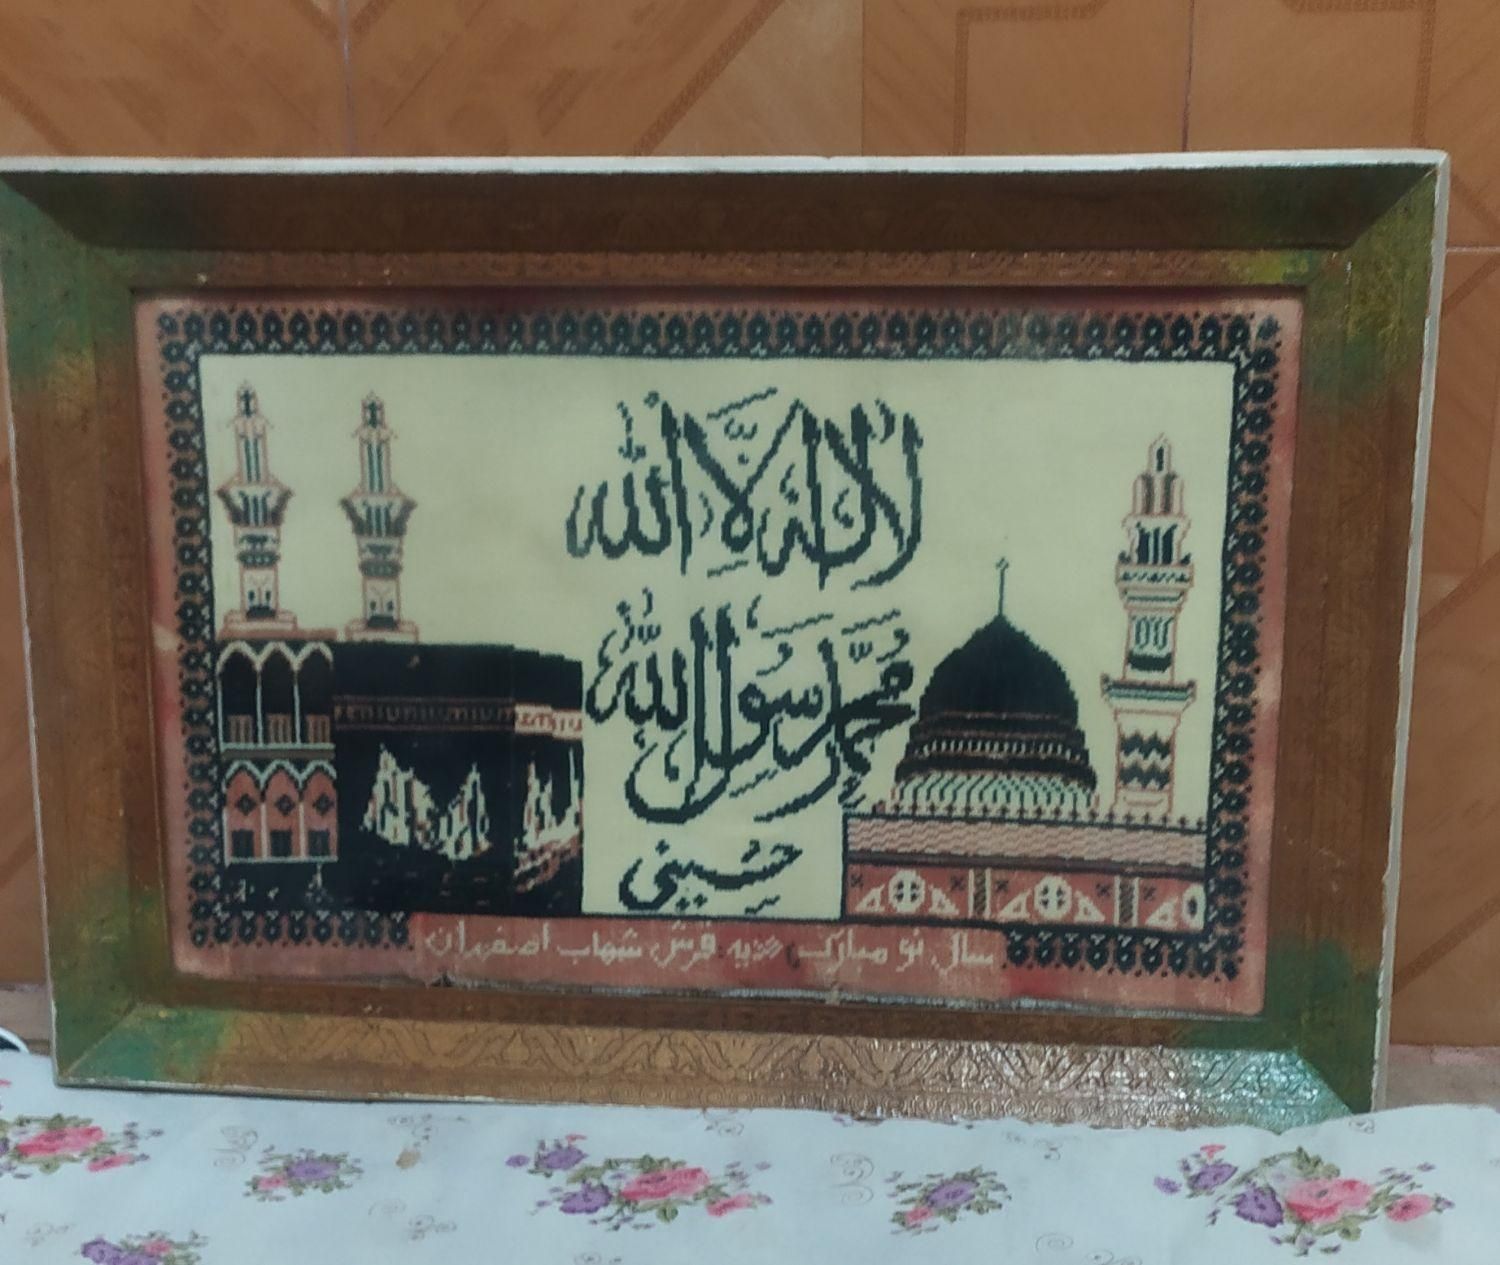 لا اله الا الله
محمد رسول الله
حسینی
سال نو مبارک هدیه فرش شهاب اصفهان